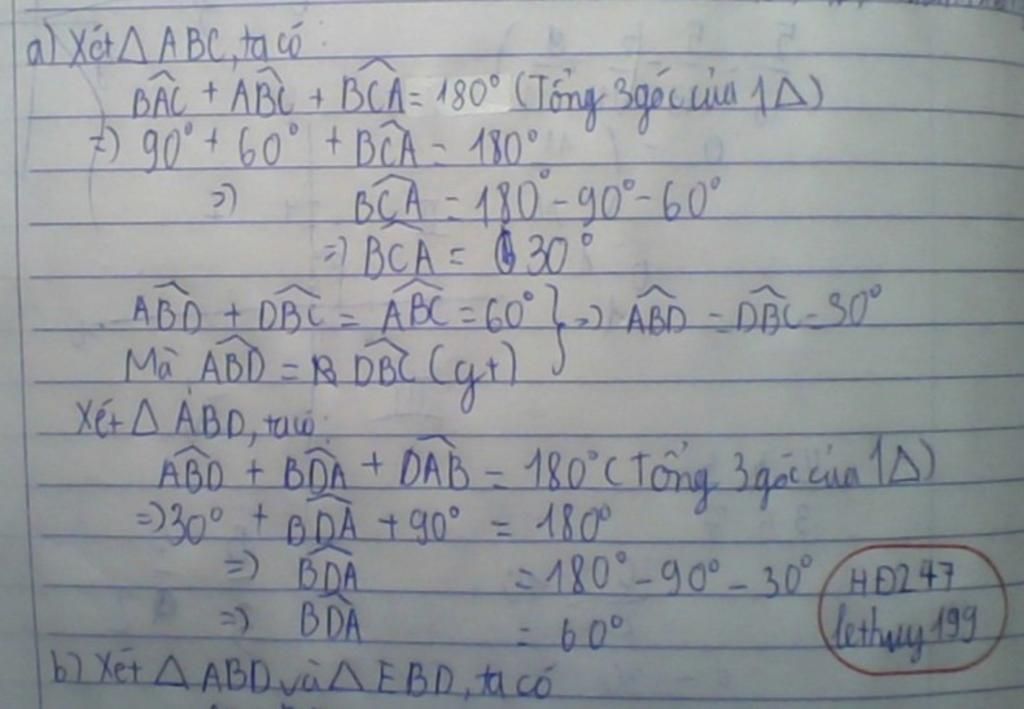 a) Xét △ ABC, ta có :
BÂC + AB̂C + BĈA = 180° (Tổng 3 góc của 1△)
=) 90° + 60° + BĈA = 180°
=) BĈA = 180° - 90° - 60°
=) BĈA = 30°
AB̂D + DB̂C = AB̂C = 60° } =) AB̂D = DB̂C = 30°
Mà AB̂D = DB̂C (gt)
Xét △ ABD, ta có:
AB̂D + BD̂A + DÂB = 180° (Tổng 3 góc của 1△)
=) 30° + BD̂A + 90° = 180°
=) BD̂A = 180° - 90° - 30°
=) BD̂A = 60°
HĐ247
lethuy199
b) Xét △ ABD và △ EBD, ta có